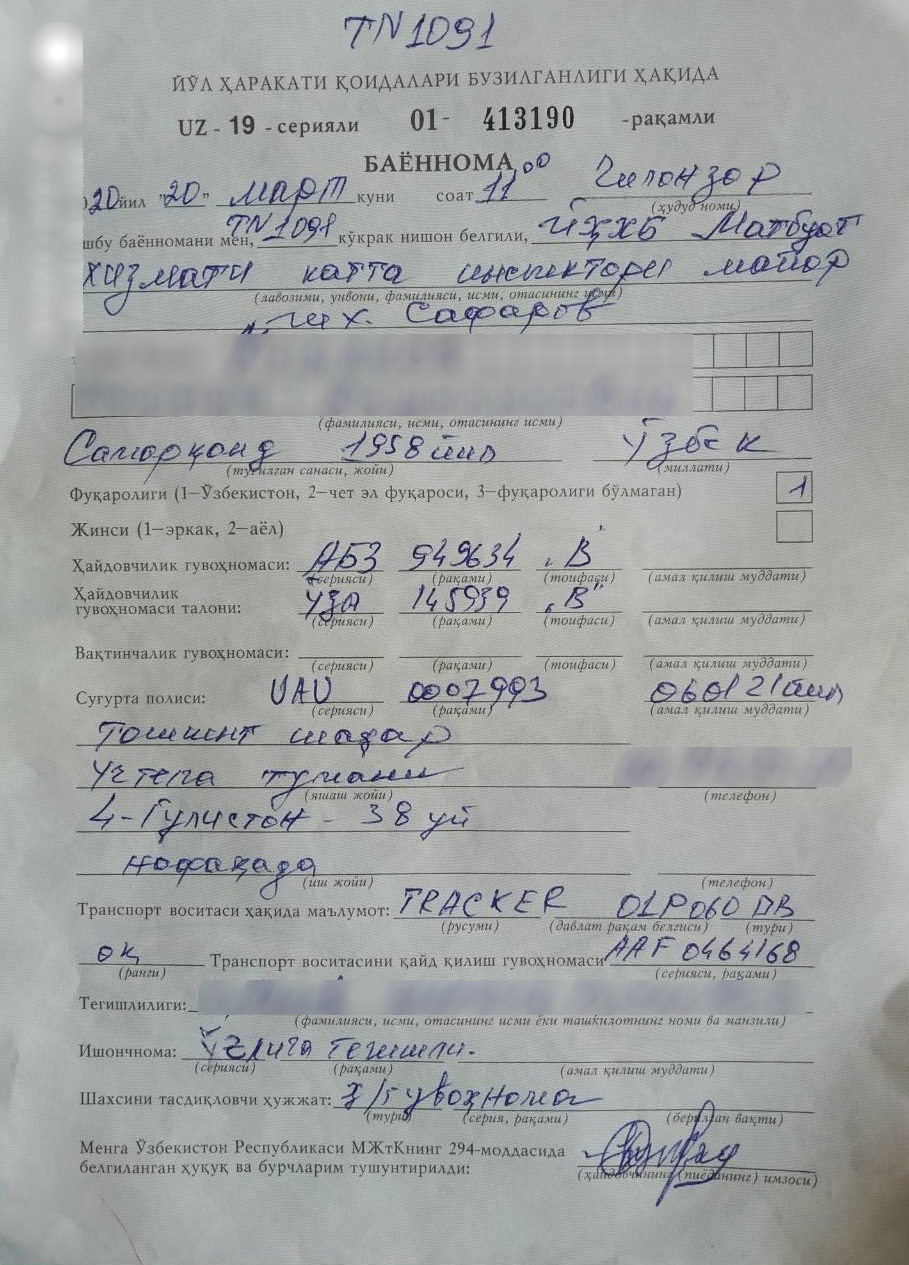 TN1091
ЙЎЛ ҲАРАКАТИ ҚОИДАЛАРИ БУЗИЛГАНЛИГИ ҲАҚИДА
UZ - 19 - серияли 01- 413190 -рақамли
БАЁННОМА
20 йил "20" март куни соат 11 00 Чилонзор
(ҳудуд номи)
шбу баённомани мен, TN1091 кўкрак нишон белгили, ЙҲХБ Матбуот
хизмати катта инспектори майор
(лавозими, унвони, фамилияси, исми, отасининг исми)
Сафаров
(фамилияси, исми, отасининг исми)
Самарқанд 1958 йил Ўзбек
(туғилган санаси, жойи) (миллати)
Фуқаролиги (1–Ўзбекистон, 2–чет эл фуқароси, 3–фуқаролиги бўлмаган) 1
Жинси (1–эркак, 2–аёл)
Ҳайдовчилик гувоҳномаси: АБЗ 949634 "В"
(серияси) (рақами) (тоифаси) (амал қилиш муддати)
Ҳайдовчилик
гувоҳномаси талони: УЗА 145939 "В"
(серияси) (рақами) (тоифаси) (амал қилиш муддати)
Вақтинчалик гувоҳномаси:
(серияси) (рақами) (тоифаси) (амал қилиш муддати)
Суғурта полиси: UAU 0007993 060121 йил
(серияси) (рақами) (амал қилиш муддати)
Тошкент шаҳар
Учтепа тумани
(яшаш жойи) (телефон)
4-Гулистон - 38 уй
нафақада
(иш жойи) (телефон)
Транспорт воситаси ҳақида маълумот: TRACKER 01P060DB
(русуми) (давлат рақам белгиси) (тури)
оқ Транспорт воситасини қайд қилиш гувоҳномаси AAF 0464168
(ранги) (серияси, рақами)
Тегишлилиги:
(фамилияси, исми, отасининг исми ёки ташкилотнинг номи ва манзили)
Ишончнома: Ўзлига тегишли.
(серияси) (рақами) (амал қилиш муддати)
Шахсини тасдиқловчи ҳужжат: Ҳ/гувоҳнома
(тури) (серия, рақами) (берилган вақти)
Менга Ўзбекистон Республикаси МЖтКнинг 294-моддасида
белгиланган ҳуқуқ ва бурчларим тушунтирилди:
(ҳайдовчининг (пиёданинг) имзоси)